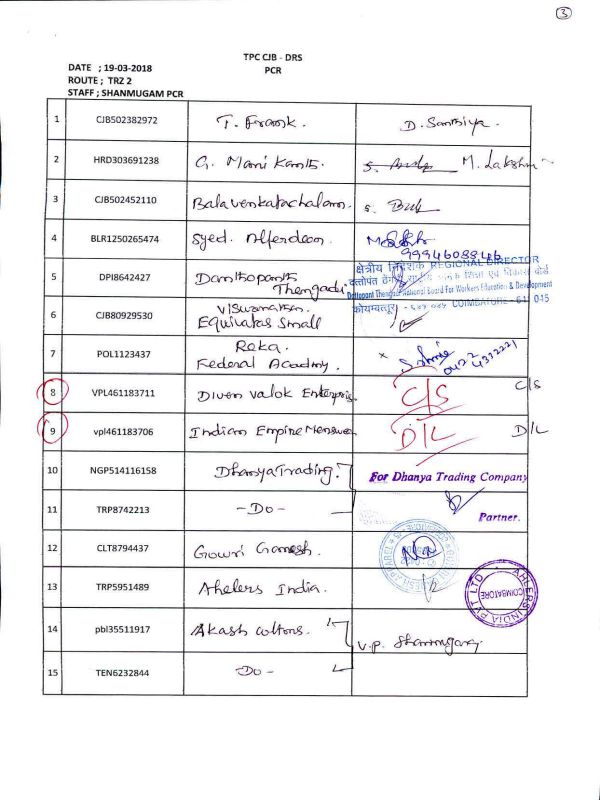 3
TPC CJB - DRS
PCR
DATE ; 19-03-2018
ROUTE ; TRZ 2
STAFF ; SHANMUGAM PCR
1 CJB502382972 T. Frank. D. Santhiya.
2 HRD303691238 G. Manikanth. M. Lakshmi
3 CJB502452110 Balavenkatachalam. S.
4 BLR1250265474 Syed. Alferdeen.
9994608846
5 DPI8642427 Danthopanth
Thengadi
क्षेत्रीय निदेशक REGIONAL DIRECTOR
दत्तोपंत
शिक्षा एवं विकास बोर्ड
Dattopant Thengadi National Board For Workers Education & Development
कोयम्बत्तूर - 641 045 COIMBATORE - 641 045
6 CJB80929530 Viswanathan.
Equitatas Small
7 POL1123437 Reka.
Federal Academy. x
0422
4312221
8 VPL461183711 Diven Valok Enterpris. C/S C/S
9 vpl461183706 Indian Empire Menswear D/L D/L
10 NGP514116158 Dhanya Trading. For Dhanya Trading Company
11 TRP8742213 - Do - Partner.
12 CLT8794437 Gowri Ganesh.
13 TRP5951489 Ahelers India.
AHLERS INDIA PVT LTD
COIMBATORE
14 pbl35511917 Akash cottons. V.P. Shanmugam
15 TEN6232844 - Do -